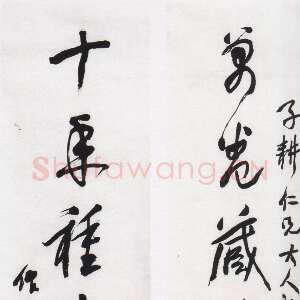 子耕仁兄大人
万卷藏
十年種
Shufawang.CN